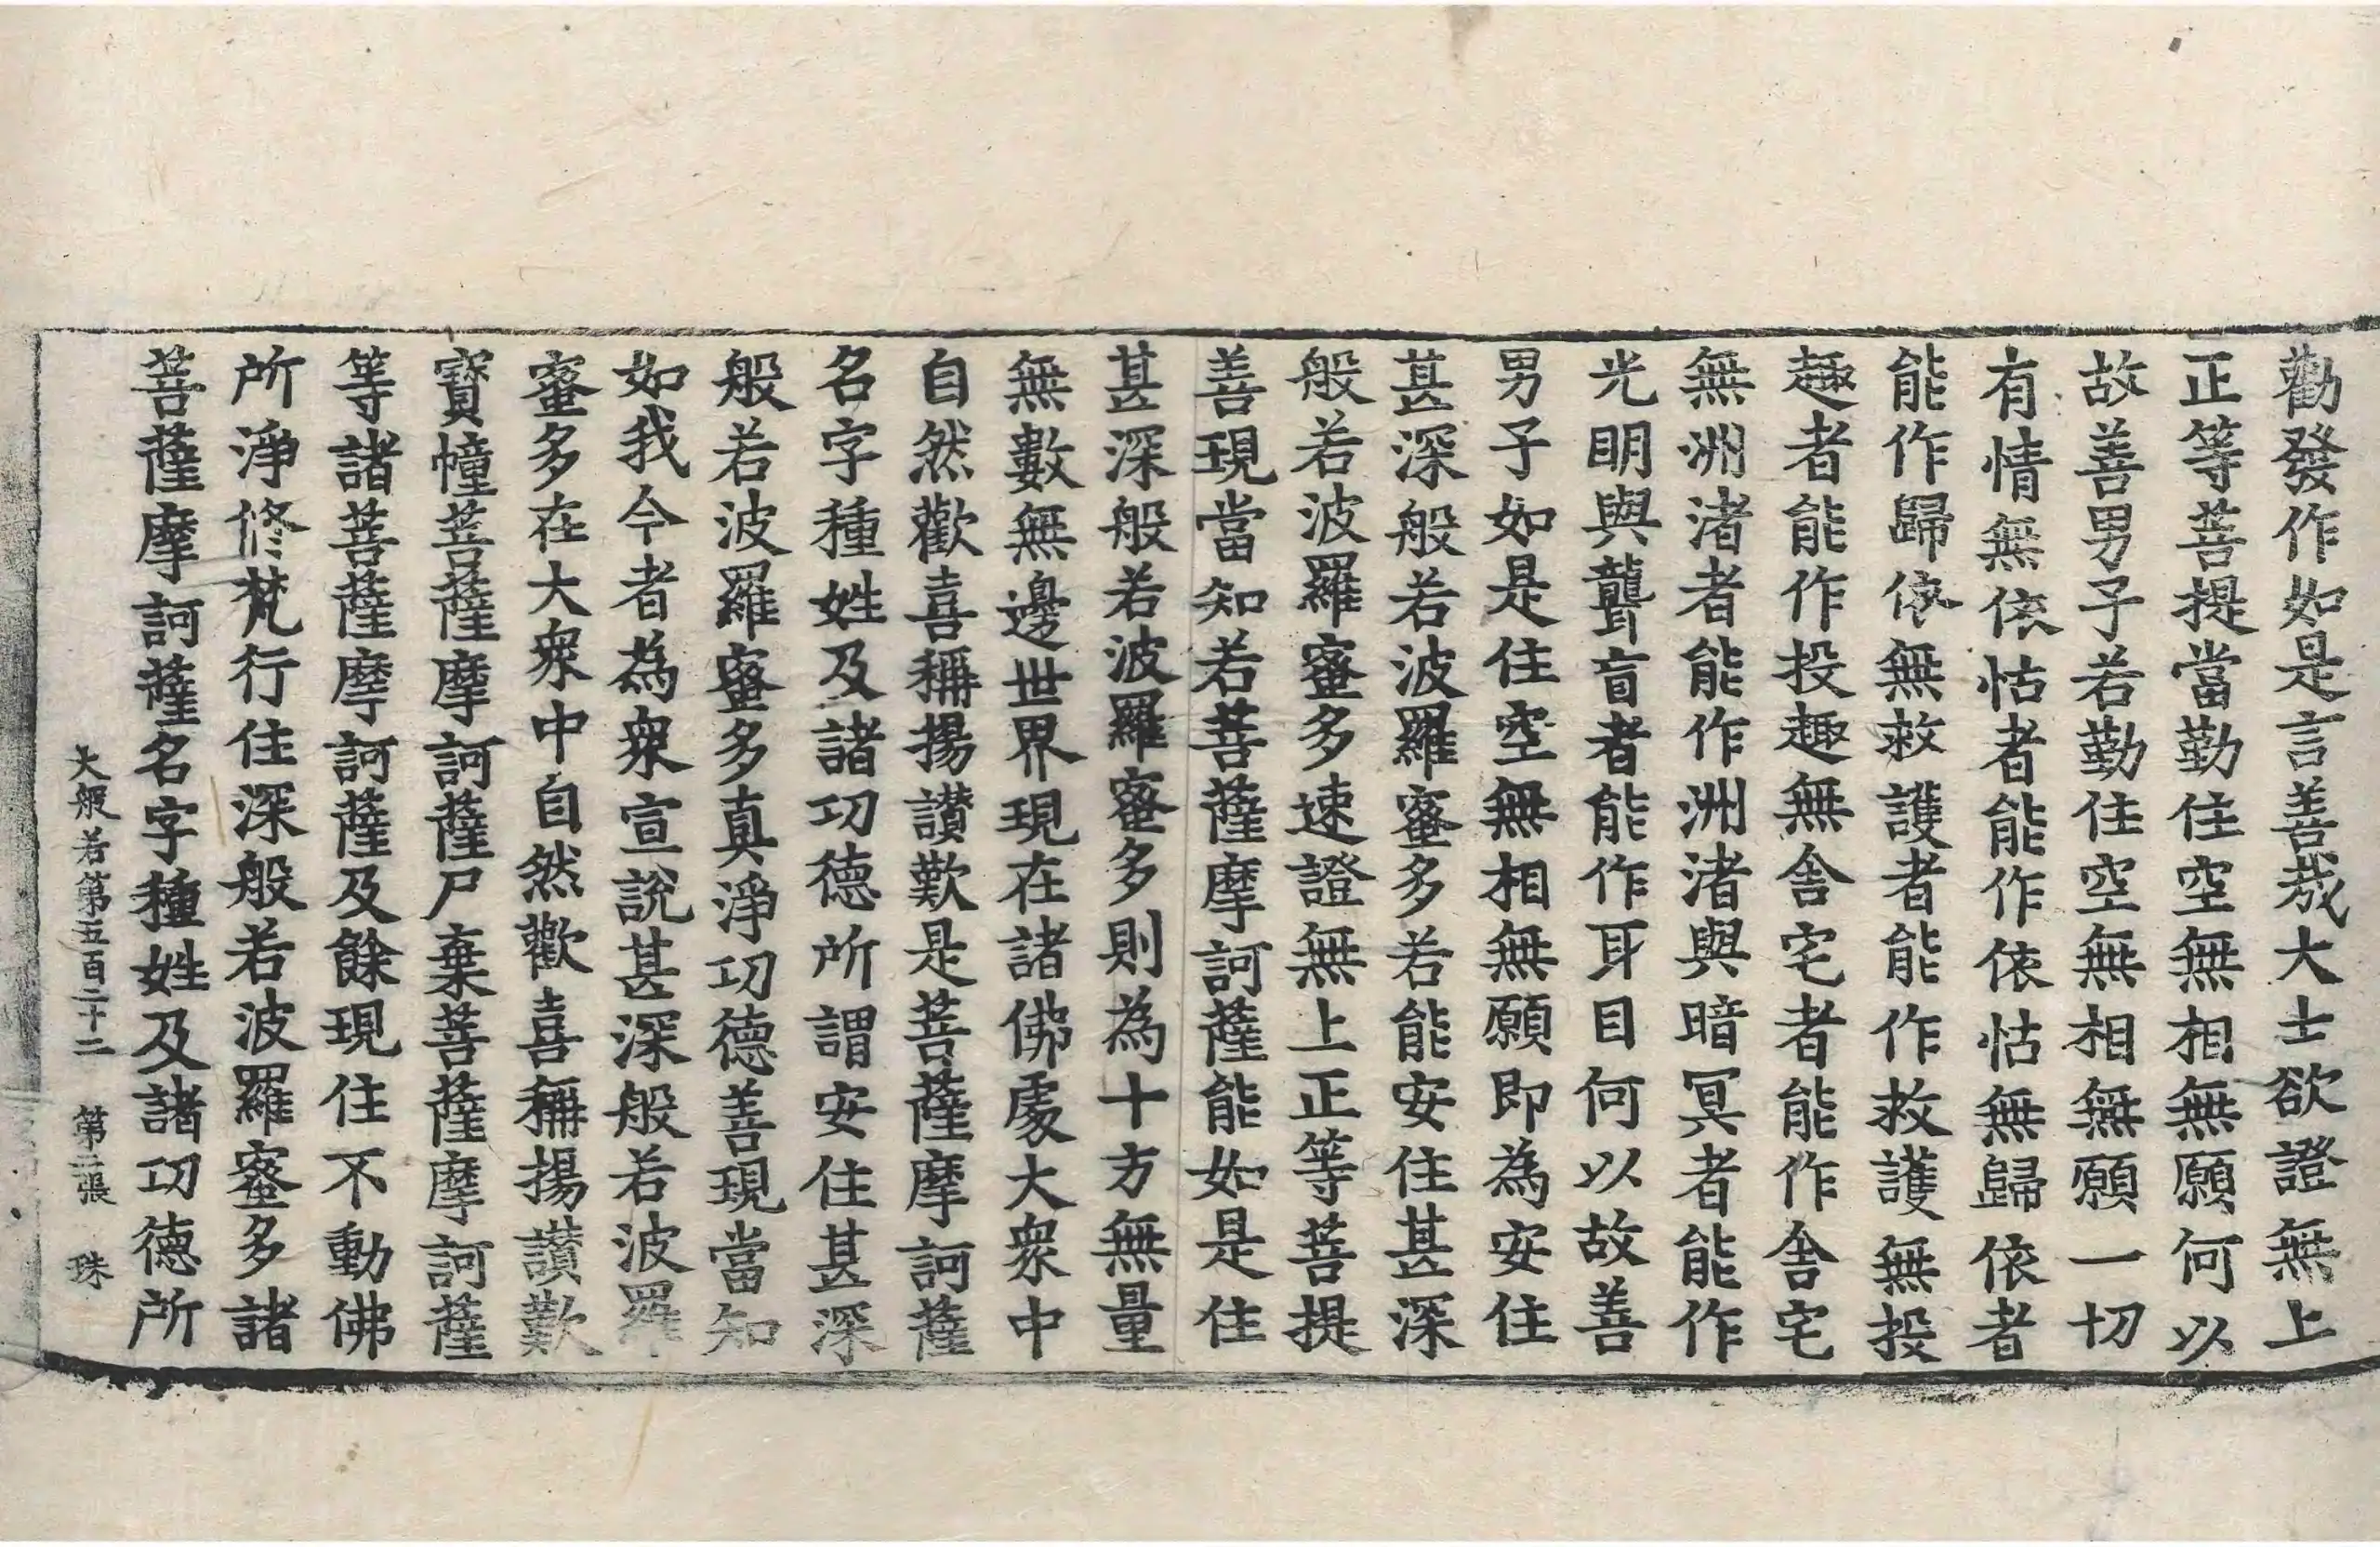 勸發作如是言善哉大士欲證無上
正等菩提當勤住空無相無願何以
故善男子若勤住空無相無願一切
有情無依怙者能作依怙無歸依者
能作歸依無救護者能作救護無投
趣者能作投趣無舍宅者能作舍宅
無洲渚者能作洲渚與暗冥者能作
光明與聾盲者能作耳目何以故善
男子如是住空無相無願即為安住
甚深般若波羅蜜多若能安住甚深
般若波羅蜜多速證無上正等菩提
善現當知若菩薩摩訶薩能如是住
甚深般若波羅蜜多則為十方無量
無數無邊世界現在諸佛處大衆中
自然歡喜稱揚讚歎是菩薩摩訶薩
名字種姓及諸功德所謂安住甚深
般若波羅蜜多真淨功德善現當知
如我今者為衆宣說甚深般若波羅
蜜多在大衆中自然歡喜稱揚讚歎
寶幢菩薩摩訶薩尸棄菩薩摩訶薩
等諸菩薩摩訶薩及餘現住不動佛
所淨修梵行住深般若波羅蜜多諸
菩薩摩訶薩名字種姓及諸功德所
大般若第五百二十二 第二張 珠